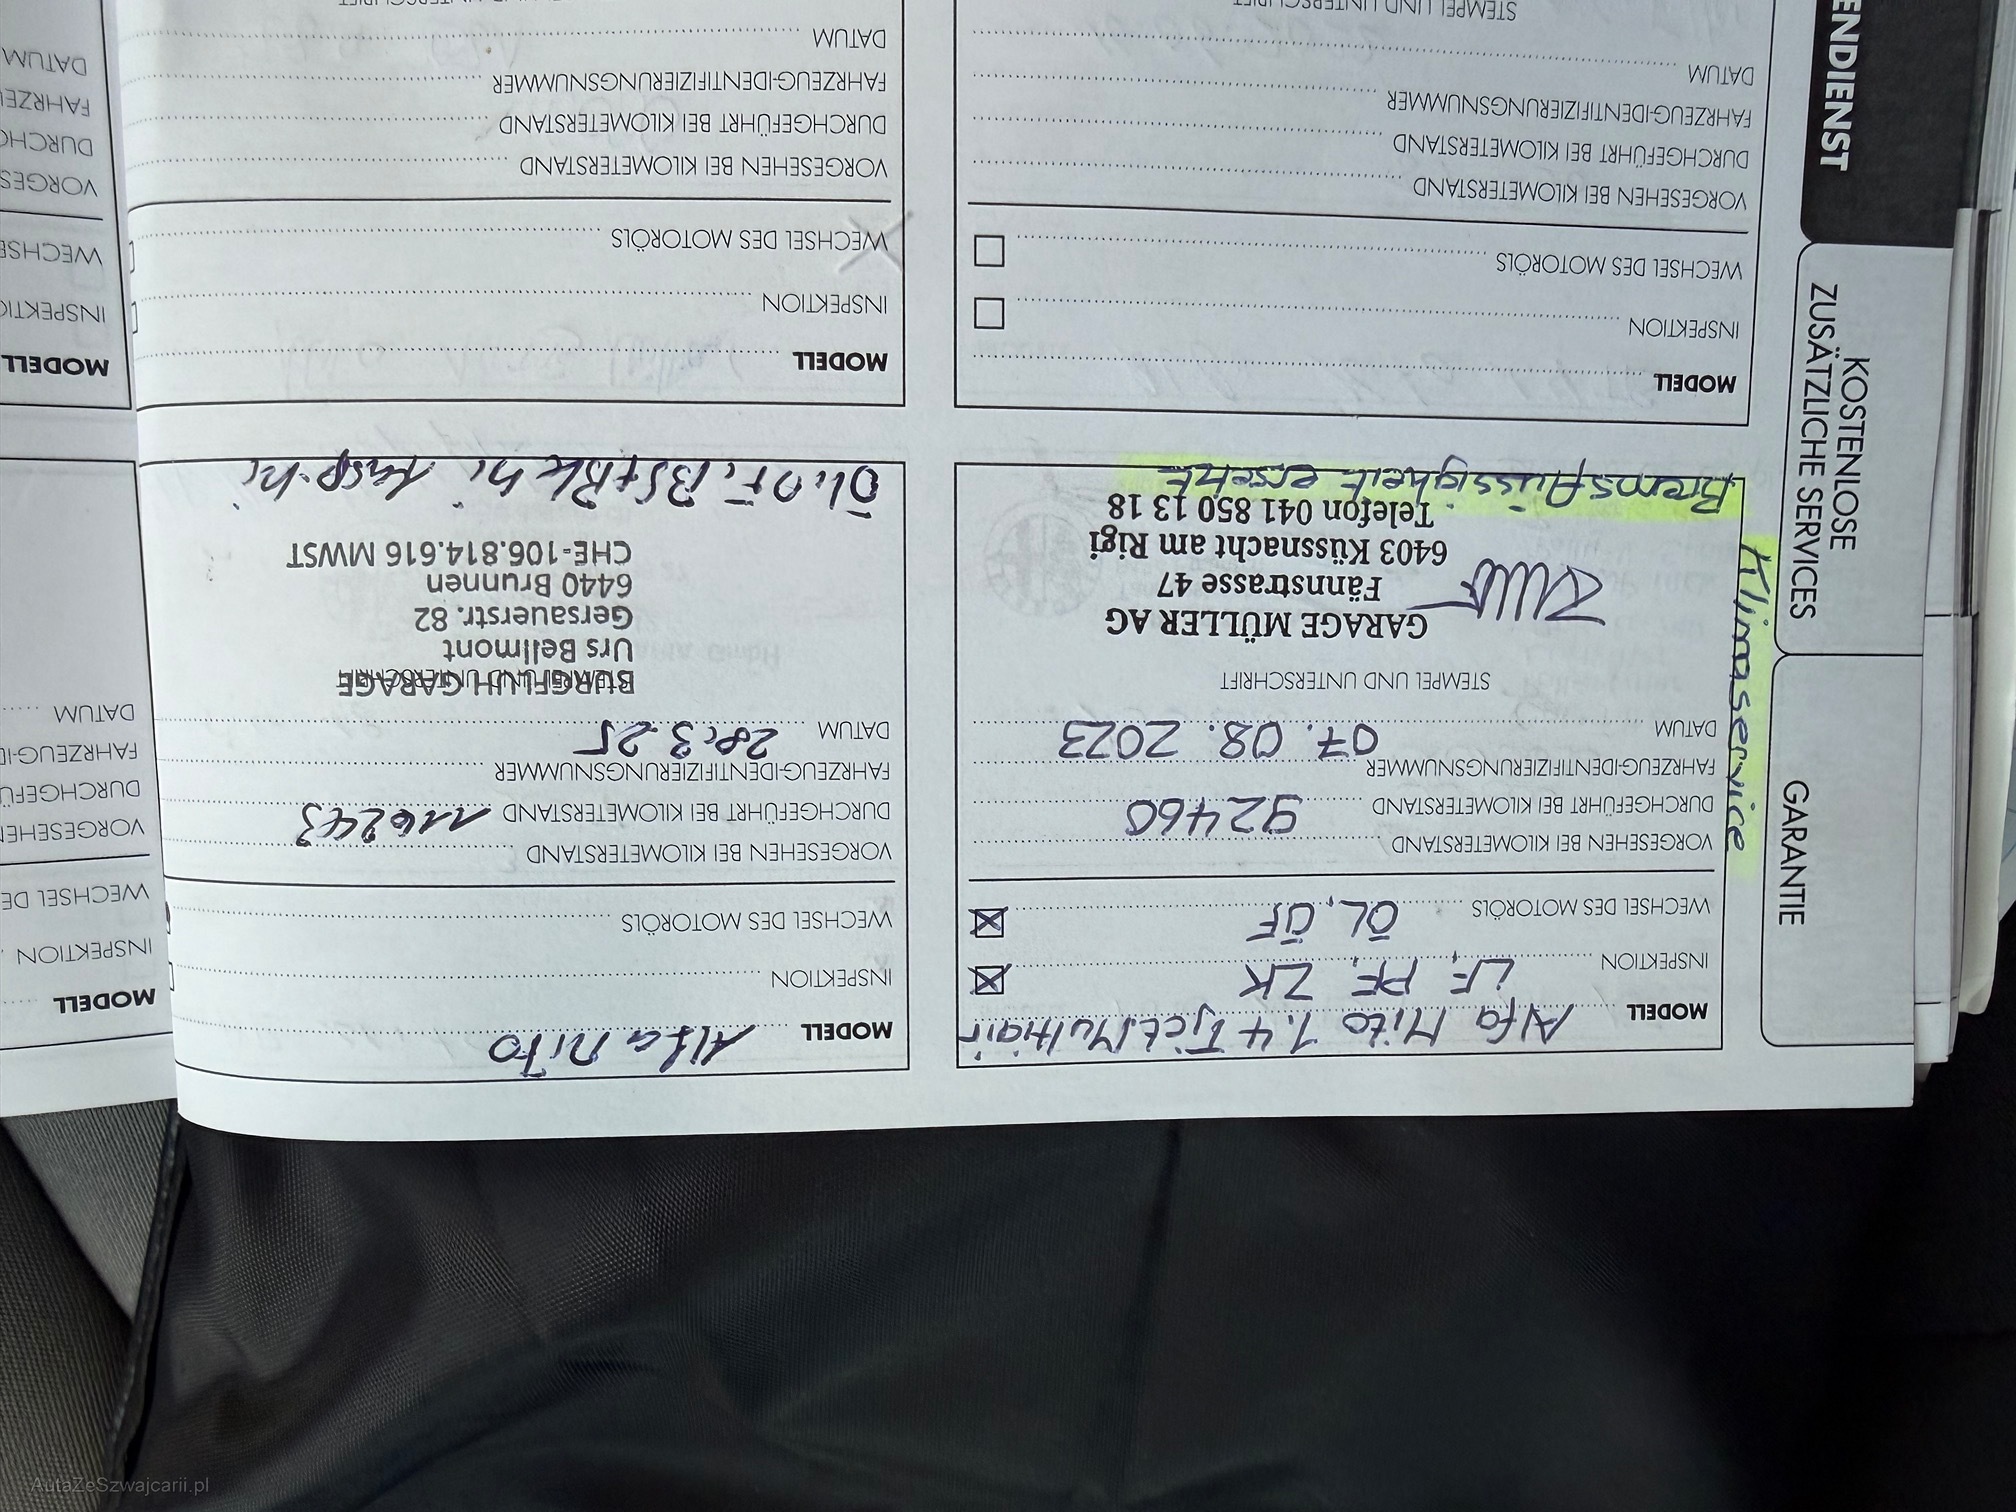 MODELL Alfa Mito 1.4 TJet Multiair
INSPEKTION LF, PF, ZK
WECHSEL DES MOTORÖLS ÖL, ÖF
VORGESEHEN BEI KILOMETERSTAND
DURCHGEFÜHRT BEI KILOMETERSTAND 92460
FAHRZEUG-IDENTIFIZIERUNGSNUMMER
DATUM 07.08.2023
STEMPEL UND UNTERSCHRIFT
GARAGE MÜLLER AG
Fännstrasse 47
6403 Küssnacht am Rigi
Telefon 041 850 13 18
Bremsflüssigkeit ersetzt
Klimaservice
MODELL Alfa Mito
INSPEKTION
WECHSEL DES MOTORÖLS
VORGESEHEN BEI KILOMETERSTAND
DURCHGEFÜHRT BEI KILOMETERSTAND 116243
FAHRZEUG-IDENTIFIZIERUNGSNUMMER
DATUM 28.3.25
STEMPEL UND UNTERSCHRIFT
BURGFLUH GARAGE
Urs Bellmont
Gersauerstr. 82
6440 Brunnen
CHE-106.814.616 MWST
MODELL
INSPEKTION
WECHSEL DE
VORGESEHEN
DURCHGEFÜ
FAHRZEUG-ID
DATUM
MODELL
INSPEKTION
WECHSEL DES MOTORÖLS
VORGESEHEN BEI KILOMETERSTAND
DURCHGEFÜHRT BEI KILOMETERSTAND
FAHRZEUG-IDENTIFIZIERUNGSNUMMER
DATUM
STEMPEL UND UNTERSCHRIFT
MODELL
INSPEKTION
WECHSEL DES MOTORÖLS
VORGESEHEN BEI KILOMETERSTAND
DURCHGEFÜHRT BEI KILOMETERSTAND
FAHRZEUG-IDENTIFIZIERUNGSNUMMER
DATUM
STEMPEL UND UNTERSCHRIFT
MODELL
INSPEKTI
WECHSE
VORGES
DURCHG
FAHRZE
DATUM
ENDIENST
KOSTENLOSE
ZUSÄTZLICHE SERVICES
GARANTIE
AutaZeSzwajcarii.pl